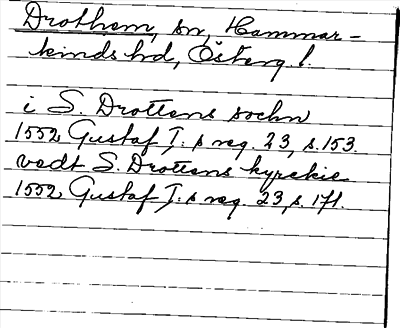 Drothem, sn, Hammar-
kinds hd, Österg l.
i S. Drottens sochn
1552 Gustaf I:s reg. 23, s. 153.
vedt S. Drottens kyrckie
1552 Gustaf I:s reg. 23, s. 171.